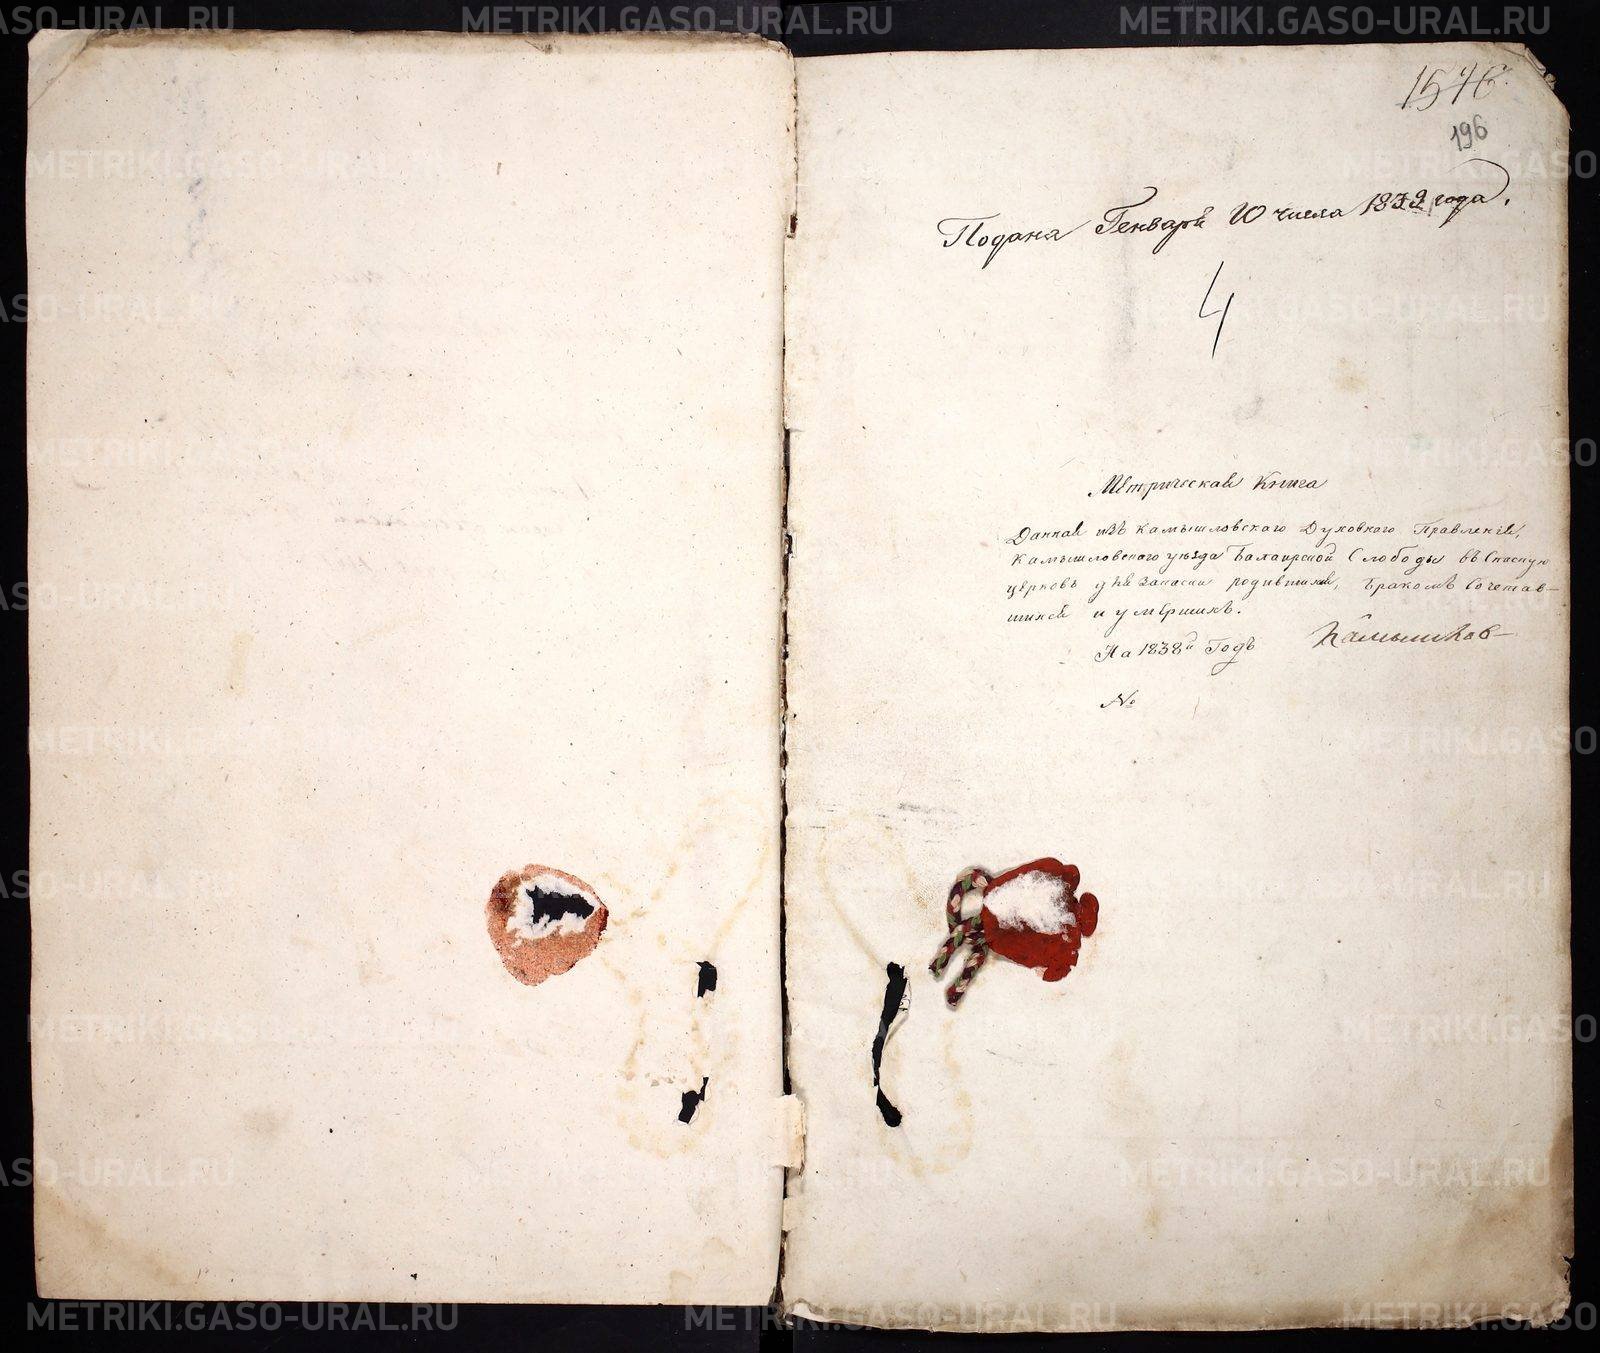 1546.
196
Подана Генваря 10 числа 1839 года.
4
Метрическая Книга
Данная изъ Камышловскаго Духовнаго Правленія,
Камышловскаго уѣзда Балаирской Слободы въ Спасскую
церковь для записки родившихся, бракомъ сочетав-
шихся и умершихъ.
На 1838й Годъ
Камышлов
№
METRIKI.GASO-URAL.RU